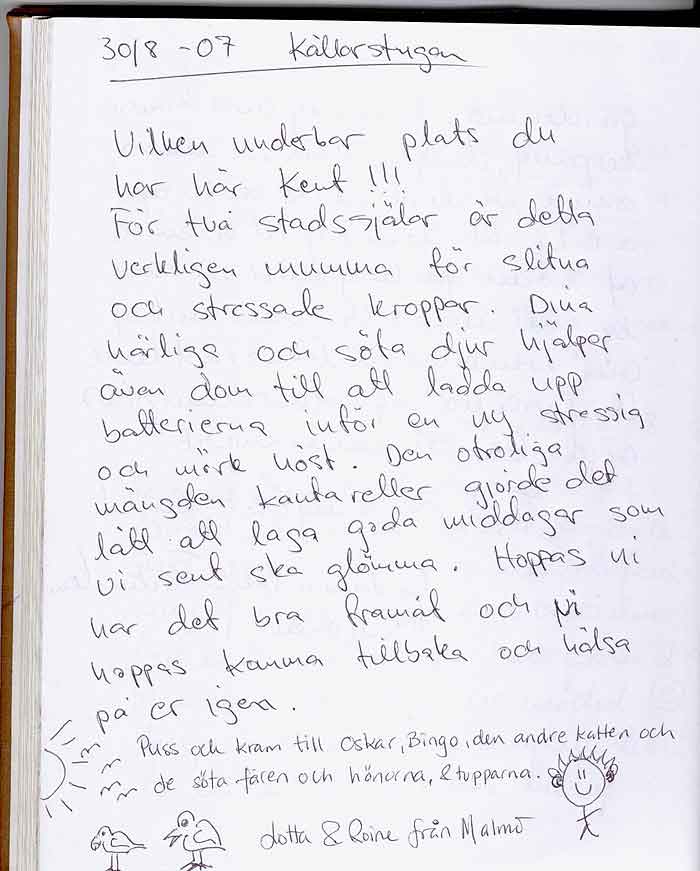 30/8 -07 Källarstugan
Vilken underbar plats du
har här Kent !!!
För två stadssjälar är detta
verkligen mumma för slitna
och stressade kroppar. Dina
härliga och söta djur hjälper
även dom till att ladda upp
batterierna inför en ny stressig
och mörk höst. Den otroliga
mängden kantareller gjorde det
lätt att laga goda middagar som
vi sent ska glömma. Hoppas ni
har det bra framåt och vi
hoppas komma tillbaka och hälsa
på er igen.
Puss och kram till Oskar, Bingo, den andre katten och
de söta fåren och hönorna, & tupparna.
Lotta & Roine från Malmö